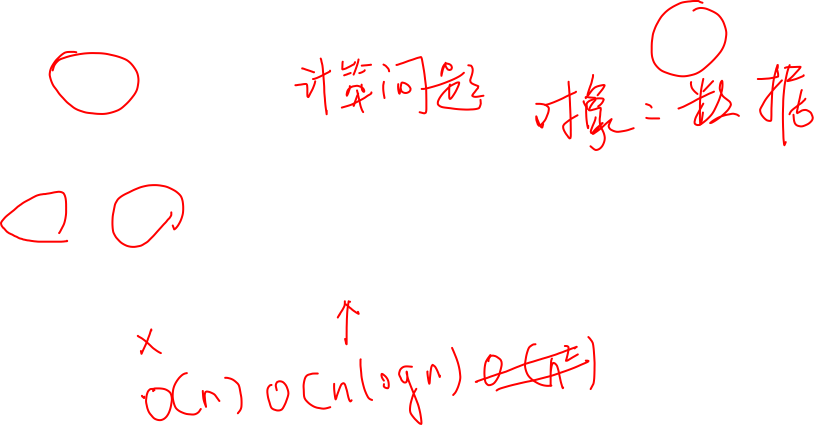 计算问题
对象：数据
×
O(n) O(nlogn) O(n²)